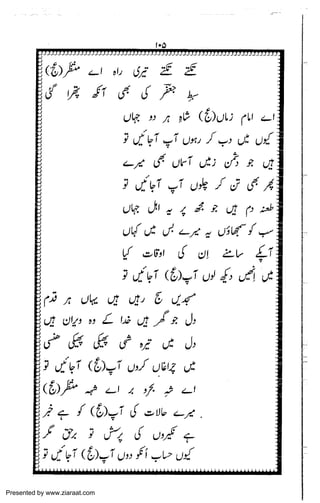 ۱۰۵
تکتے تکتے تیری راہ اے منتظَر(عج)
سبط جعفر کی بھی آنکھ پتھرا گئی
اے امام زماں(عج) شاہِ ہر دو جہاں
کیوں میں دب کر رہوں آپ آجائیں تو
ہیں جو دشمن زمیں آسماں بھی میرے
پھر بھی تن کر چلوں آپ آجائیں تو
طعنہ دم ہیں جو مجھ پر یہ اہل جہاں
سب کو سمجھاؤں یہ میرے بس میں کہاں
آپکے سامنے ان کی اوقات کیا
میں انھیں دیکھ لوں آپ(عج) آجائیں تو
مسجدیں سج رہیں ہیں یہاں ہر قدم
دل جو گھر ہیں خدا کے وہ ویران ہیں
دل میں تیرہ شبی پھیکی پھیکی ہنسی
میں چراغاں کروں آپ(عج) آجائیں تو
اے شہِ بحر و بر اے شہہ منتظَر(عج)
میرے حالات کی آپ(عج) کو ہے خبر
ہے نکیروں کی پرسش تو برحق مگر
کیوں حساب انکو دوں آپ(عج) آجائیں تو
Presented by www.ziaraat.com